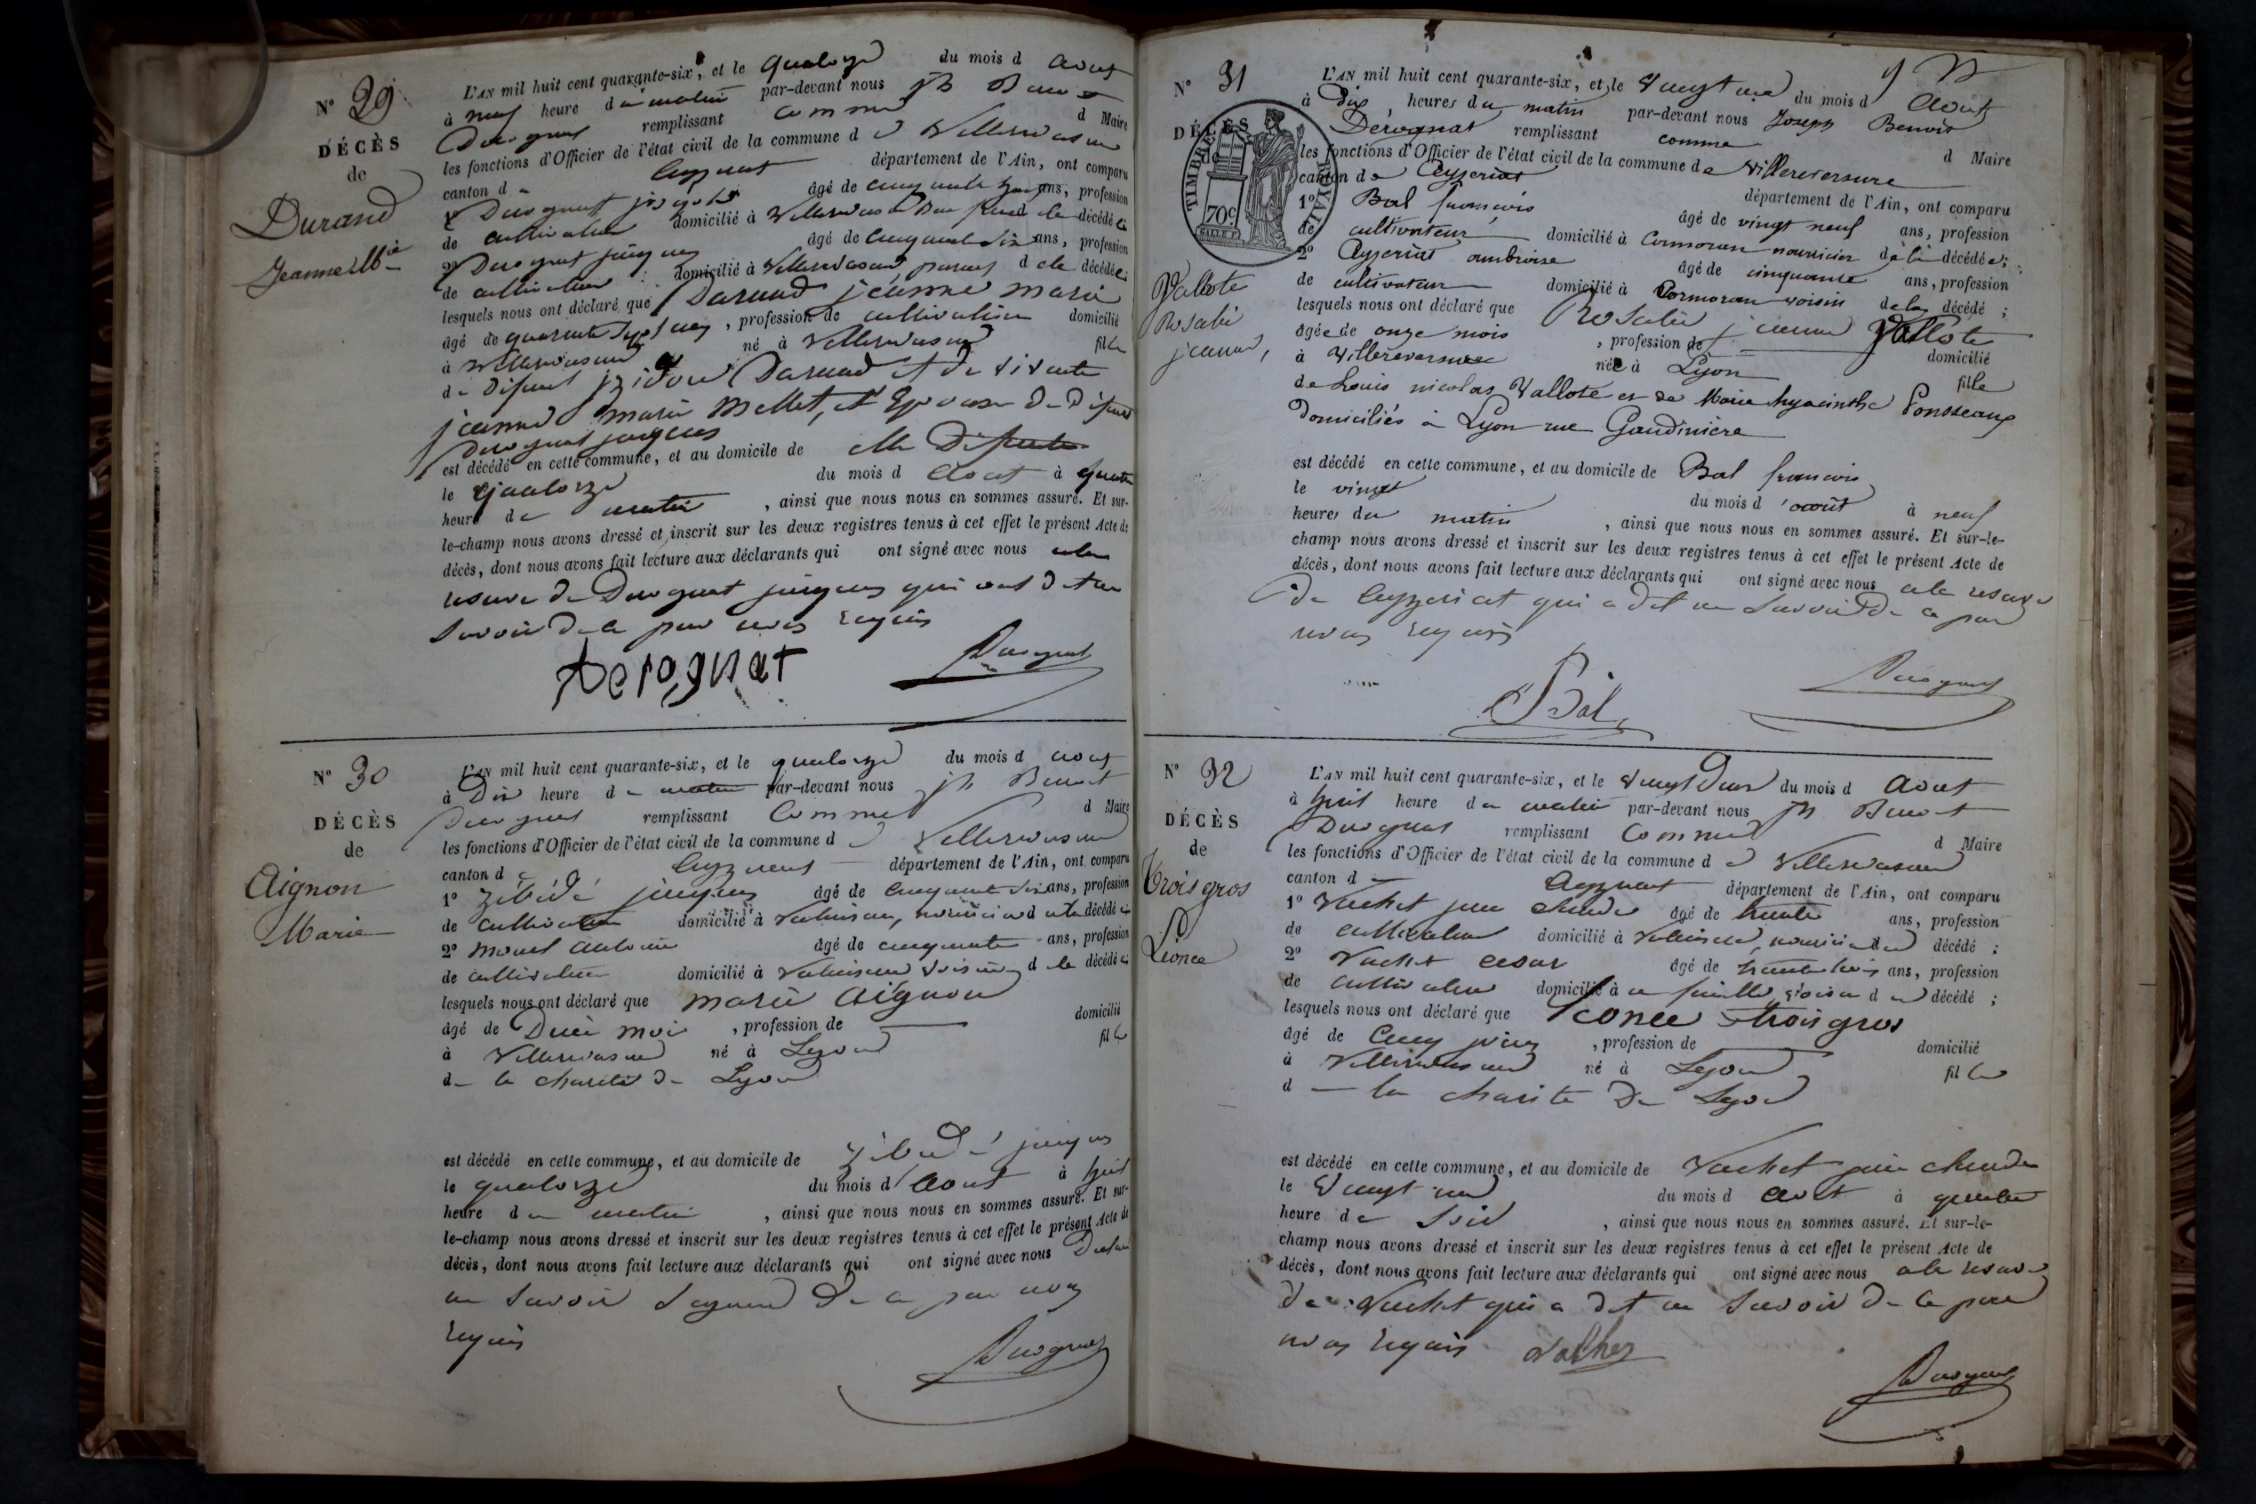 N° 29
DÉCÈS
de
Durand
Jeanne Mie
L'AN mil huit cent quarante-six, et le quatorze du mois d aout
à neuf heure du matin par-devant nous Jh Benoit
Derognat remplissant comme d Maire
les fonctions d'Officier de l'état civil de la commune d e Villereversure
canton d e Ceyzeriat département de l'Ain, ont comparu
1° Derognat âgé de cinquante ans, profession
de cultivateur domicilié à Villereversure d la décédée
2° Derognat jacques âgé de cinquante six ans, profession
de cultivateur domicilié à Villereversure parent d ela décédée;
lesquels nous ont déclaré que Durand jeanne marie
âgé de quarante sept ans, profession de cultivatrice domicilié
à Villereversure né à Villereversure fille
de défunt izidore Durand et de vivante
jeanne marie Mellet, et Epouse de défunt
Derognat jacques
est décédé en cette commune, et au domicile de elle défunte
le quatorze du mois d aout à quatre
heure du matin, ainsi que nous nous en sommes assuré. Et sur-
le-champ nous avons dressé et inscrit sur les deux registres tenus à cet effet le présent Acte de
décès, dont nous avons fait lecture aux déclarants qui ont signé avec nous a la
reserve de Derognat jacques qui ont dit ne
savoir de ce par nous requis
Derognat
Derognat
N° 30
DÉCÈS
de
Aignon
Marie
L'AN mil huit cent quarante-six, et le quatorze du mois d aout
à Dix heure du matin par-devant nous jh Benoit
Derognat remplissant Comme d Maire
les fonctions d'Officier de l'état civil de la commune d e Villereversure
canton d e Ceyzeriat département de l'Ain, ont comparu
1° jacques âgé de cinquante six ans, profession
de cultivateur domicilié à nouricier d ela décédée
2° Morel Antoine âgé de cinquante ans, profession
de cultivateur domicilié à voisin d ela décédée
lesquels nous ont déclaré que marie Aignon
âgé de mois, profession de domicilié
à Villereversure né à Lyon fille
de la charité de Lyon
est décédé en cette commune, et au domicile de jacques
le quatorze du mois d aout à huit
heure du matin, ainsi que nous nous en sommes assuré. Et sur-
le-champ nous avons dressé et inscrit sur les deux registres tenus à cet effet le présent Acte de
décès, dont nous avons fait lecture aux déclarants qui ont signé avec nous
ne savoir signer de ce par nous
requis
Derognat
N° 31
DÉCÈS
de
TIMBRE ROYAL
70c
Vallote
Rosalie
jeanne,
L'AN mil huit cent quarante-six, et le vingt un du mois d Aout
à Dix heures du matin par-devant nous Joseph Benoit
Dérognat remplissant comme d Maire
les fonctions d'Officier de l'état civil de la commune de Villereversure
canton de Ceyzeriat département de l'Ain, ont comparu
1° Bal françois âgé de vingt neuf ans, profession
de cultivateur domicilié à Cormoran nouricier de la décédée;
2° Ceyzeriat ambroise âgé de cinquante ans, profession
de cultivateur domicilié à Cormoran voisin de la décédé;
lesquels nous ont déclaré que Rosalie jeanne Vallote
âgée de onze mois, profession de domicilié
à Villereversure née à Lyon fille
de Louis nicolas Vallote et de Marie hyacinthe Ponsseaux
Domiciliés à Lyon rue Gaudinière
est décédé en cette commune, et au domicile de Bal françois
le vingt du mois d'août à neuf
heures du matin, ainsi que nous nous en sommes assuré. Et sur-le-
champ nous avons dressé et inscrit sur les deux registres tenus à cet effet le présent Acte de
décès, dont nous avons fait lecture aux déclarants qui ont signé avec nous a la reserve
de Ceyzeriat qui a dit ne savoir de ce par
nous requis
Bal
Derognat
N° 32
DÉCÈS
de
Troisgros
Léonce
L'AN mil huit cent quarante-six, et le vingt deux du mois d Aout
à huit heure du matin par-devant nous Jh Benoit
Derognat remplissant Comme d Maire
les fonctions d'Officier de l'état civil de la commune d e Villereversure
canton d e Ceyzeriat département de l'Ain, ont comparu
1° Vuchet claude âgé de trente ans, profession
de cultivateur domicilié à nouricier d u décédé;
2° Vuchet cesar âgé de trente trois ans, profession
de cultivateur domicilié à voisin d u décédé;
lesquels nous ont déclaré que Léonce troisgros
âgé de Cinq jours, profession de domicilié
à Villereversure né à Lyon fil
d e la charité de Lyon
est décédé en cette commune, et au domicile de Vuchet claude
le vingt un du mois d aout à quatre
heure du soir, ainsi que nous nous en sommes assuré. Et sur-le-
champ nous avons dressé et inscrit sur les deux registres tenus à cet effet le présent Acte de
décès, dont nous avons fait lecture aux déclarants qui ont signé avec nous a la reserve
de Vuchet qui a dit ne savoir de ce par
nous requis
Derognat